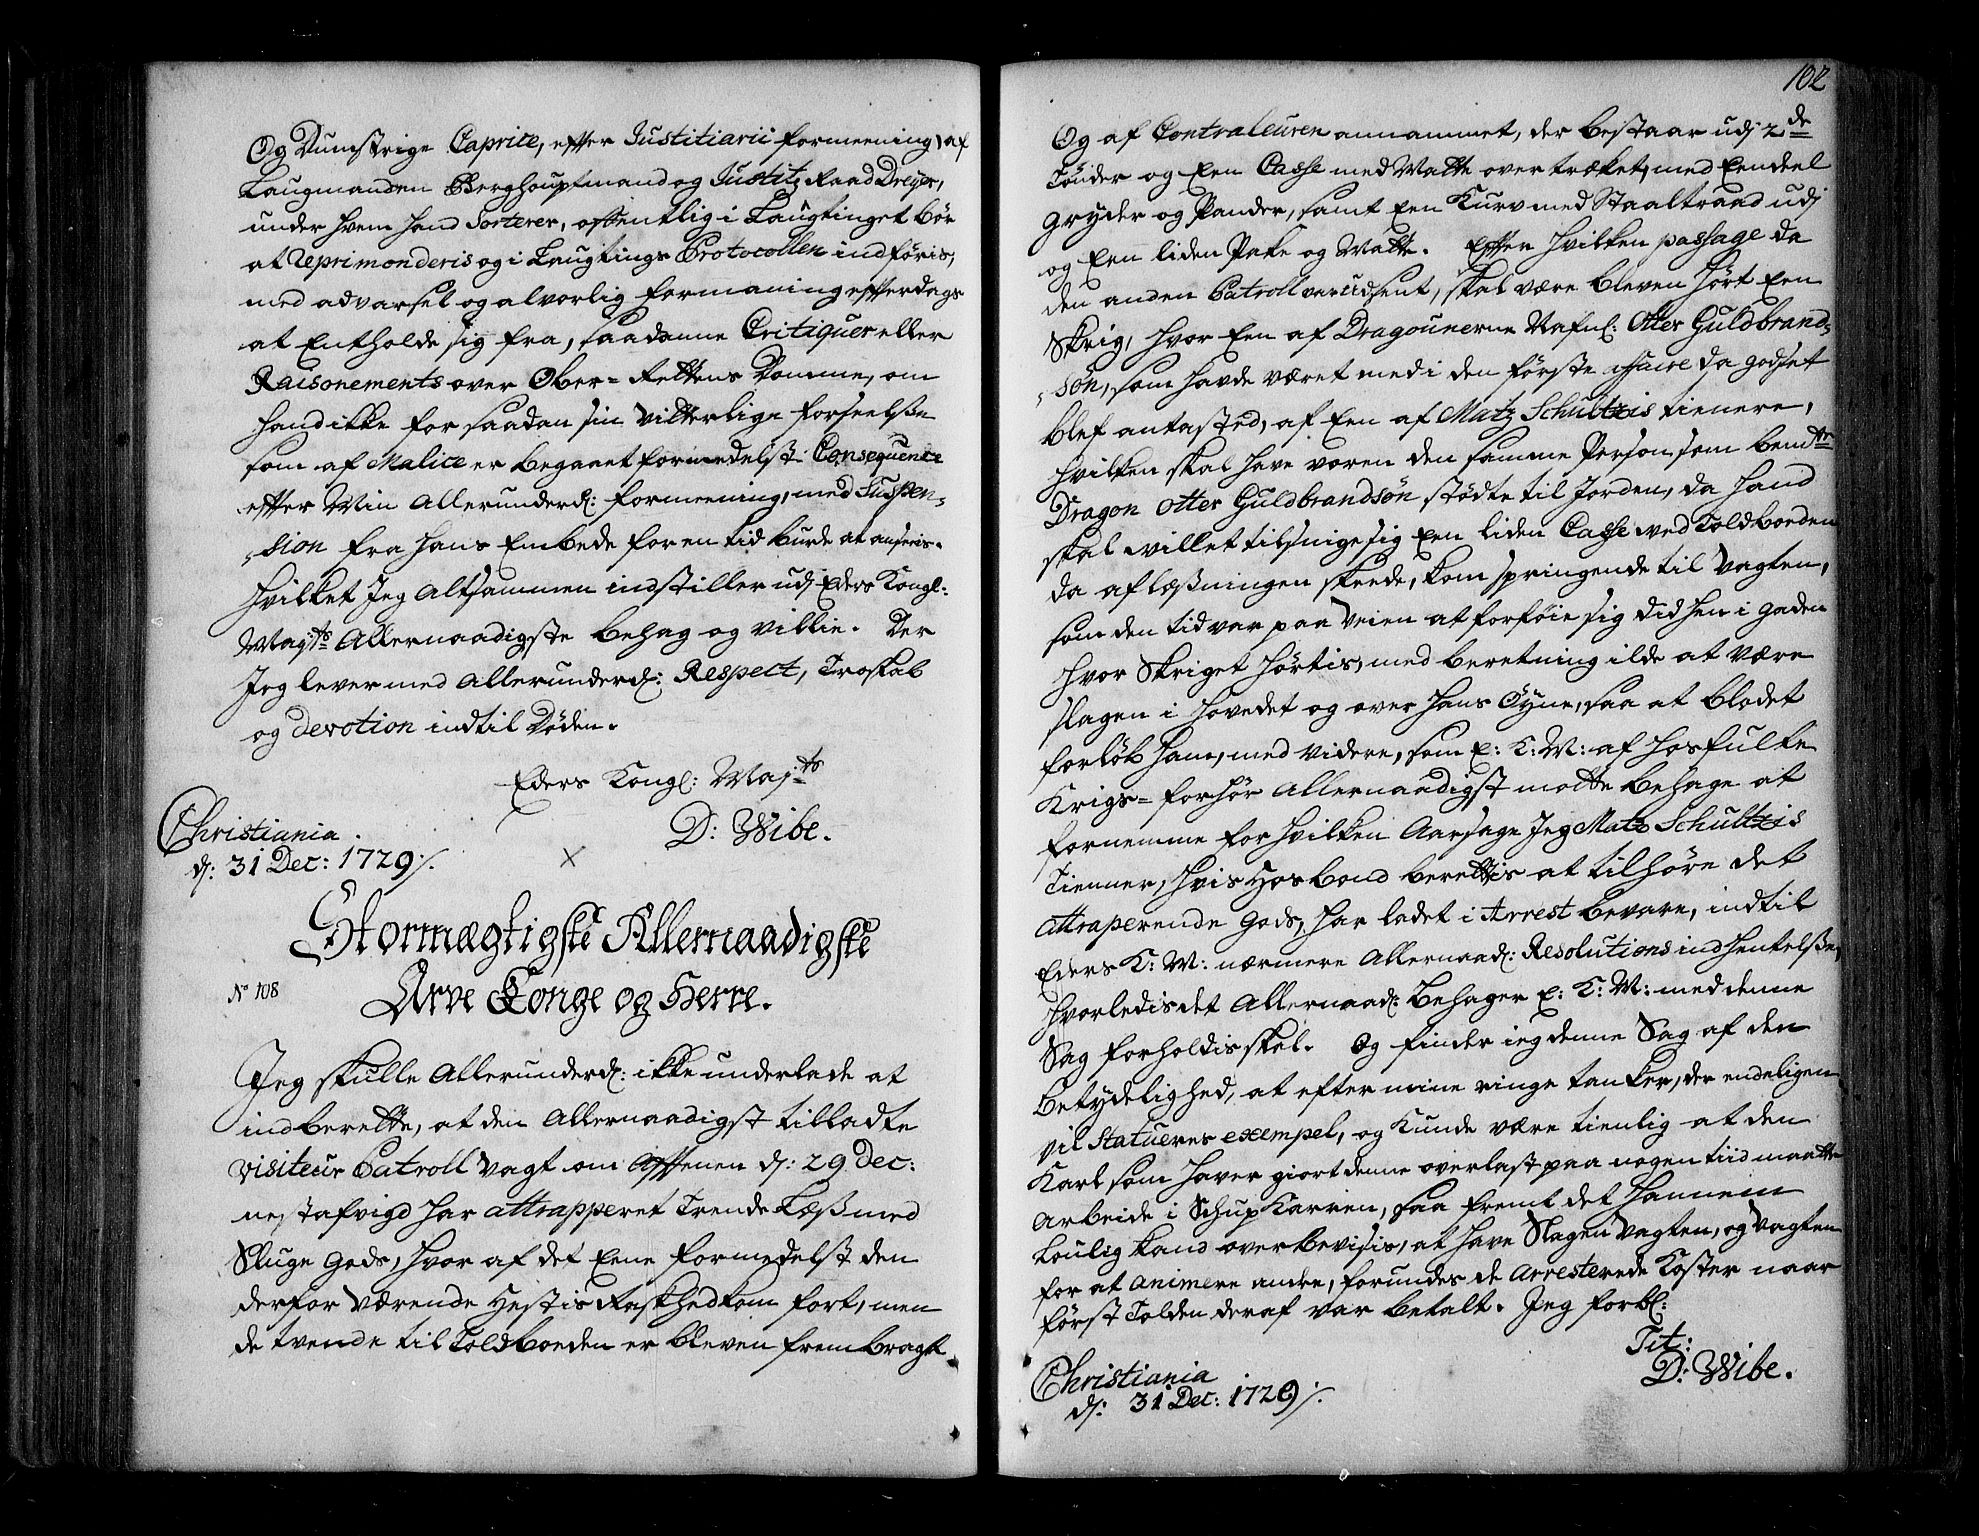 Og Dumstrige Caprice, efter Justitiarii formeening, af
Laugmanden Berghouptmand og Justitz Raad Dreyer,
under hvem hand Sorterer, offentlig i Laugtinget bør
at Reprimonderis og i Laugtings Protocollen indføris,
med advarsel og alvorlig formaning efterdags
at Entholde sig fra, saadanne Critiquer eller
Raisonements over Ober-Rettens Domme, om
hand ikke for saadan sin vitterlige forseelße
som af Malice er begaaet formedelst Consequence
efter Min Allerunderd: formeening, med Suspen-
sion fra hans Embede for en tid burde at anseeis.
Hvilket Jeg Altsammen indstiller udj Eders Kongl:
Majts Allernaadigste behag og Villie. Der
Jeg lever med Allerunderd: Respect, Troskab
og devotion indtil Døden.
Eders Kongl: Majts
D: Wibe.
Christiania
d: 31 Dec: 1729 ./.
Stormægtigste Allernaadigste
Arve Konge og Herre.
No 108
Jeg skulle Allerunderd: ikke underlade at
indberette, at den Allernaadigst tilladte
visiteur Patroll Vagt om Afftenen d: 29 Dec:
nestafvigd har attrapperet Trende Læß med
Sluge Gods, hvor af det Eene formedelst den
derfor Værende Hestis Raskhed kom fort, men
de tvende til Toldboeden er bleven frembragt
102
Og af Contraleuren annammet, der bestaar udj 2de
Tønder og Een Casse med Matte overtræket, med Eendeel
gryder og Pander, samt Een Kurv med Staaltraad udj
og Een liden Pake og Matte. Efter hvilken passage da
den anden Patroll var udsent, skal være bleven hørt Een
Skrig, hvor Een af Dragounerne Nafnl: Otter Guldbrand-
søn, som havde været med i den første affaire da godset
blef antasted, af Een af Matz Schultzis tienere,
hvilken skal have voren den samme Person som bemte
Dragon Otter Guldbrandsøn stødte til Jorden, da hand
skal willet tilsnige sig Een liden Casse ved Toldboeden
da aflæßningen skeede, kom springende til Vagten,
som den tid var paa Veien at forføie sig did hen i gaden
hvor Skriget hørtis, med beretning ilde at være
slagen i hovedet og over hans Øyne, saa at blodet
forløb ham, med videre, som E: K: M: af hosfulte
Krigs-forhør Allernaadigst motte behage at
fornemme for hvilken Aarsage Jeg Matz Schultzis
Tienner, hvis Hosbond berettis at tilhøre det
attraperende Gods, har ladet i Arrest bevare, indtil
Eders K: M: nærmere Allernaad: Resolutions indhentelße,
hvorledis det Allernaad: behager E: K: M: med denne
Sag forholdis skal. Og finder ieg denne Sag af den
betydelighed, at efter mine ringe tanker, der endeligen
vil Statueres exempel, og kunde være tienlig at den
Karl som haver giort denne overlast paa nogen tiid maatte
arbeide i Schup Karren, saa fremt det hannem
loulig kand overbevisis, at have Slagen Vagten, og Vagten
for at animere andre, forundes de Arresterede Koster naar
først Tolden deraf var betalt. Jeg forbl:
Tit:
D: Wibe.
Christiania
d: 31 Dec: 1729 ./.